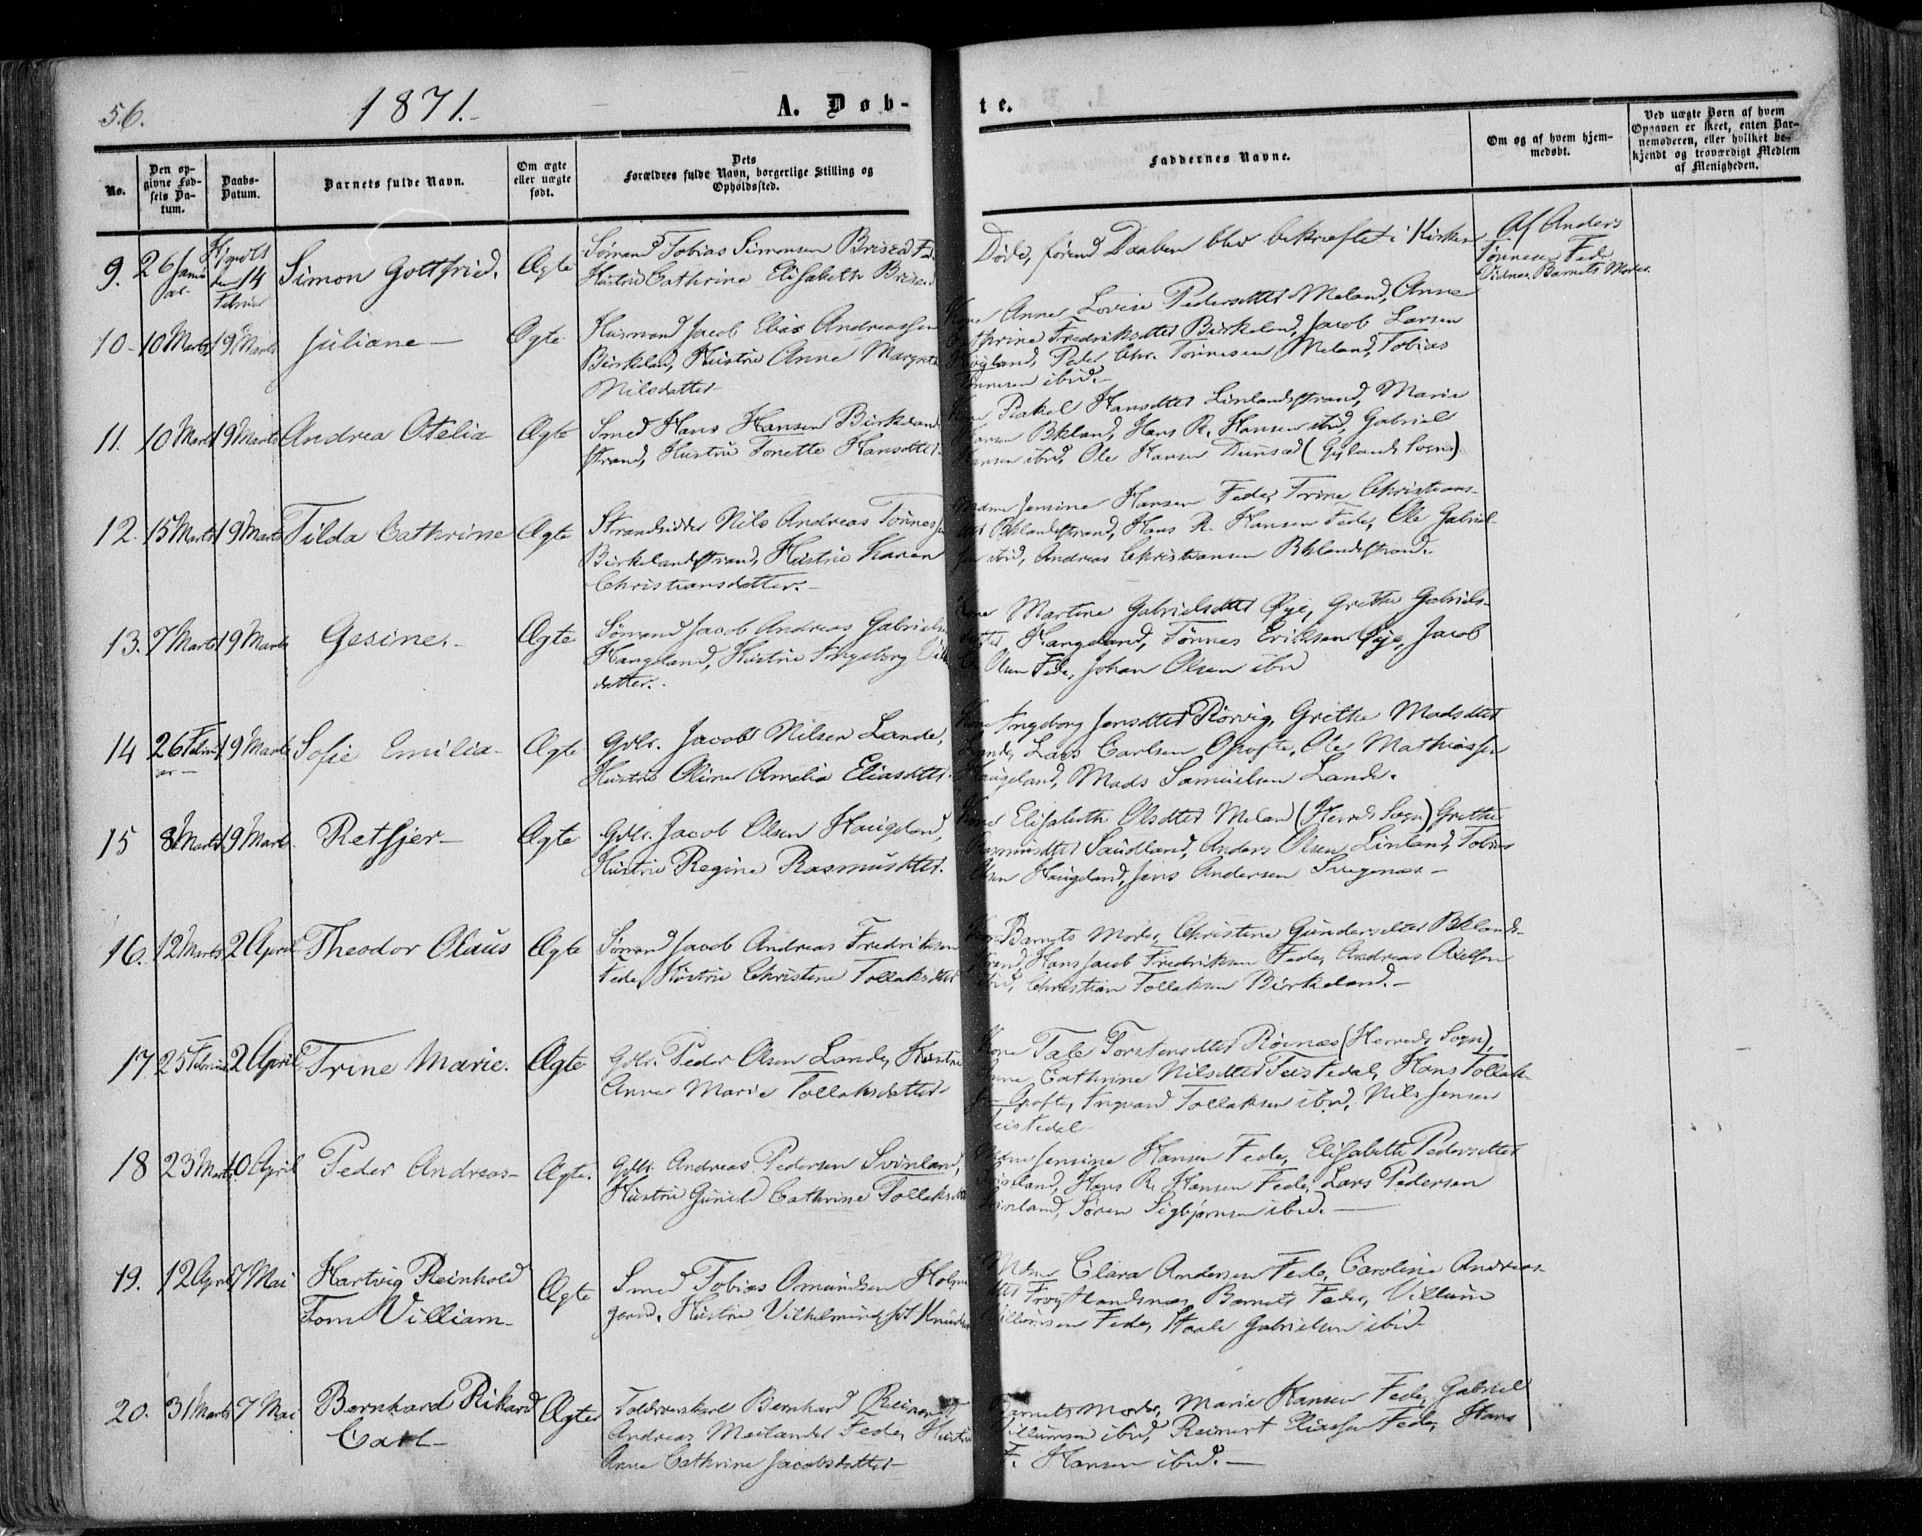 56.
1871.
A. Døb-
te.
No.
Den op-
givne Fød-
sels Da-
tum.
Daabs-
Datum.
Barnets fulde Navn.
Om ægte
eller uægte
født.
Dets
Forældres fulde Navn, borgerlige Stilling og
Opholdssted.
Faddernes Navne.
Om og af hvem hjem-
medøbt.
Ved uægte Børn af hvem
Opgaven er skeet, enten Bar-
nemoderen, eller hvilket be-
kjendt og troværdigt Medlem
af Menigheden.
9.
26 Janu
ar.
den 14
Februar
Simon Gottfried.
Ægte
Sømand Tobias Simonsen Briseid
Hustru Cathrine Elisabeth Briseid
Døde, førend Daaben blev bekræftet i Kirken
Af Anders
Tønnesen Fede
Vidne, Barnets Moder.
10.
10 Marts
19 Marts
Juliane
Ægte
Husmand Jacob Elias Andreassen
Birkeland, Hustru Anne Margrete
Nilsdatter
Kone Anne Lovise Pedersdtter Meland, Anne
Cathrine Fredriksdtter Birkeland, Jacob Larsen
Frøyland, Peder Chr. Tønnesen Meland, Tobias
Tønnesen ibid.
11.
10 Marts
19 Marts
Andrea Otelia
Ægte
Smed Hans Hansen Birkeland
strand, Hustru Tonette Hansdtter
Kone Rakel Hansdtter Linlandsstrand, Marie
Hansen Bkland, Hans R. Hansen ibid, Gabriel
Hansen ibid, Ole Hansen (Gylands Sogn)
12.
15 Marts
19 Marts
Tilda Cathrine
Ægte
Strandsidder Nils Andreas Tønnessen
Birkelandsstrand, Hustru Karen
Christiansdatter.
Mdme Jensine Hansen Fede, Trine Christians-
dtter Bklandsstrand, Hans R. Hansen Fede, Ole Gabriel-
sen ibid, Andreas Christiansen Bklandsstrand.
13.
7 Marts
19 Marts
Gesine.
Ægte
Sømand Jacob Andreas Gabrielsen
Haugeland, Hustru Ingeborg
datter.
Kone Martine Gabrielsdtter Øye, Grethe Gabriels-
datter Haugeland, Tønnes Eriksen Øye, Jacob
Olsen Fede, Johan Olsen ibid
14
26 Febru
ar
19 Marts
Sofie Emilia
Ægte
Gdbr. Jacob Nilsen Lande,
Hustru Oline Amelia Eliasdtter.
Kone Ingeborg Jensdtter Rørvig, Grethe Madsdtter
Lande, Lars Carlsen Opofte, Ole Mathiassen
Haugeland, Mads Samuelsen Lande.
15
8 Marts
19 Marts
Retsjer
Ægte
Gdbr. Jacob Olsen Haugeland,
Hustru Regine Rasmusdtter.
Kone Elisabeth Olsdtter Meland (Herreds Sogn) Grethe
Rasmusdtter Saudland, Anders Olsen Linland, Tobias
Olsen Haugeland, Jens Andersen Svegenes
16.
12 Marts
2 April
Theodor Olaus
Ægte
Sømand Jacob Andreas Fredriksen
Fede, Hustru Christine Tollaksdtter
Kone Barnets Moder, Christine Gundersdtter Bklands-
strand, Hans Jacob Fredriksen Fede, Andreas Axelsen
ibid, Christian Tollaksen Birkeland.
17
25 Februar
2 April
Trine Marie.
Ægte
Gdbr. Peder Olsen Lande, Hustru
Anne Marie Tollaksdatter
Kone Tale Torstensdtter Røinæs (Herreds Sogn),
Anne Cathrine Nilsdtter Teistedal, Hans Tollak-
sen Opofte, Ingvard Tollaksen ibid, Nils Jensen
Teistedal
18
23 Marts
10 April
Peder Andreas
Ægte.
Gdbr. Andreas Pedersen Svinland,
Hustru Gunild Cathrine Tollaksdtter
Mdme Jensine Hansen Fede, Elisabeth Pedersdtter
Svinland, Hans R. Hansen Fede, Lars Pedersen
Svinland, Søren Sigbjørnsen ibid.
19.
12 April
7 Mai
Hartvig Reinhold
Tom Villiam
Ægte
Smed Tobias Omundsen Holme
gaard, Hustru Vilhelmine født Knudsen
Mdme Clara Andersen Fede, Caroline Andreas-
dtter Frøytlandsnæs, Barnets Fader, Villum
Villumsen Fede, Staale Gabrielsen ibid
20.
31 Marts
7 Mai
Bernhard Rikard
Carl
Ægte
Toldroerskarl Bernhard Reinert
Andreas Meilander Fede, Hustru
Anne Cathrine Jacobsdatter
Barnets Moder, Marie Hansen Fede, Gabriel
Villumsen ibid, Reinert Eliassen Fede, Hans
F. Hansen ibid.